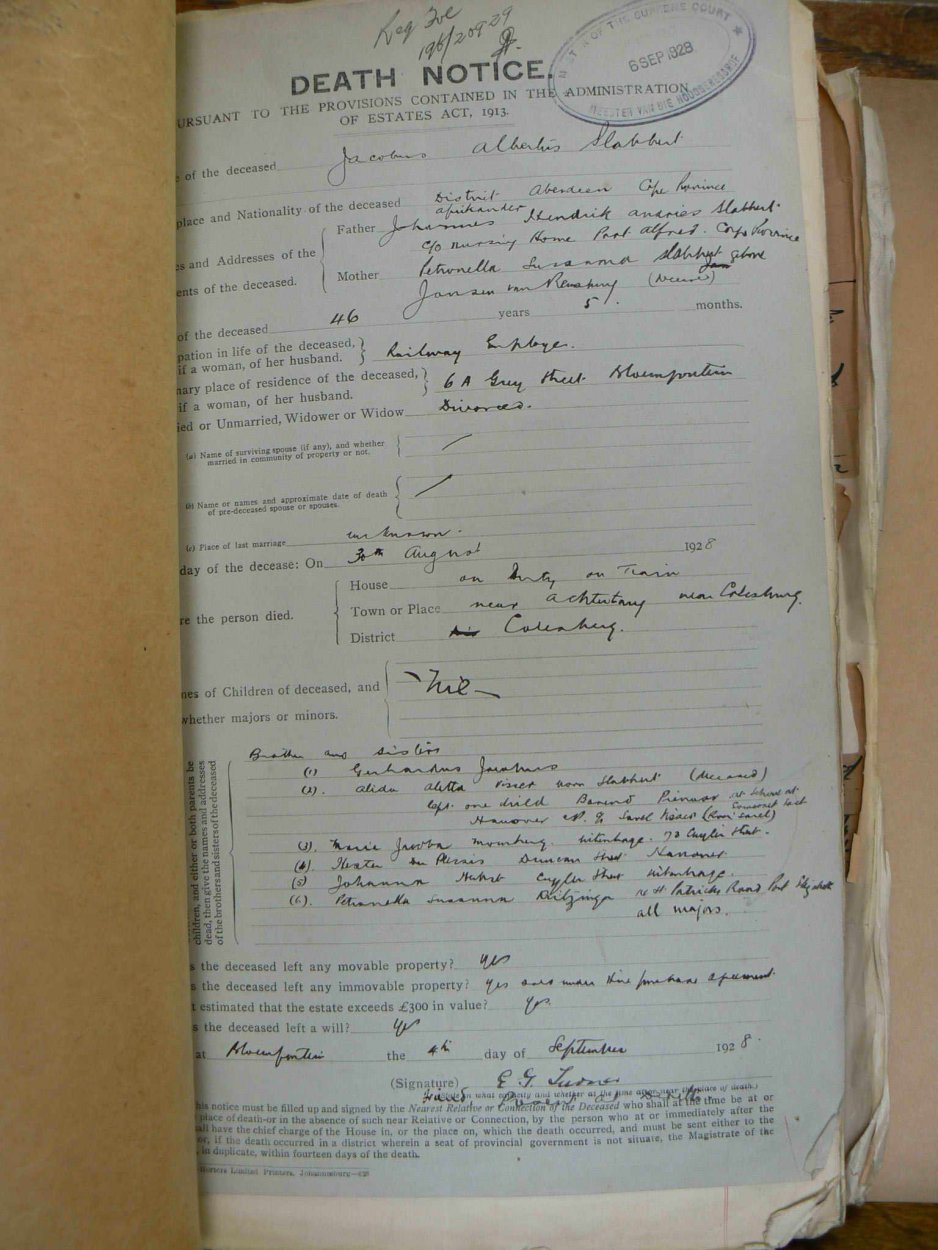 DEATH NOTICE.
6 SEP 1928
URSUANT TO THE PROVISIONS CONTAINED IN THE ADMINISTRATION
OF ESTATES ACT, 1913.
of the deceased Jacobus Albertus Slabbert
place and Nationality of the deceased District Aberdeen Cape Province
Afrikander
es and Addresses of the
ents of the deceased.
Father Johannes Hendrik Andries Slabbert
c/o Nursing Home Port Alfred. Cape Province
Mother Petronella Susanna Slabbert gebore
Jansen van Rensburg (Deceased)
of the deceased 46 years 5 months.
pation in life of the deceased,
if a woman, of her husband. Railway Employee.
nary place of residence of the deceased,
if a woman, of her husband. 6 A Grey Street Bloemfontein
ied or Unmarried, Widower or Widow Divorced.
(a) Name of surviving spouse (if any), and whether
married in community of property or not.
(b) Name or names and approximate date of death
of pre-deceased spouse or spouses.
(c) Place of last marriage unknown.
day of the decease: On 30th August 1928
re the person died.
House on Duty on Train
Town or Place near Achtertang near Colesburg.
District Colesberg.
nes of Children of deceased, and
whether majors or minors.
Nil
children, and either or both parents be
dead, then give the names and addresses
of the brothers and sisters of the deceased
Brother and Sisters
(1) Gerhardus Jacobus
(2). Alida Aletta Visser born Slabbert (deceased)
left one child Barend Pienaar at School at
Somerset East
Hanover
(3). Maria Jacoba Uitenhage. 73 Cuyler Street.
(4). Hester Du Plessis Duncan Street Hanover
(5) Johanna Cuyler Street Uitenhage.
(6). Petronella Susanna Ditzinger St Patricks Road Port Elizabeth
all majors.
s the deceased left any movable property? Yes
s the deceased left any immovable property? Yes under Hire purchase agreement
t estimated that the estate exceeds £300 in value? Yes.
s the deceased left a will? Yes
at Bloemfontein the 4th day of September 1928.
(Signature) E. G. Turner
his notice must be filled up and signed by the Nearest Relative or Connection of the Deceased who shall at the time be at or
place of death-or in the absence of such near Relative or Connection, by the person who at or immediately after the
all have the chief charge of the House in, or the place on, which the death occurred, and must be sent either to the
or, if the death occurred in a district wherein a seat of provincial government is not situate, the Magistrate of the
, in duplicate, within fourteen days of the death.
Horters Limited Printers, Johannesburg